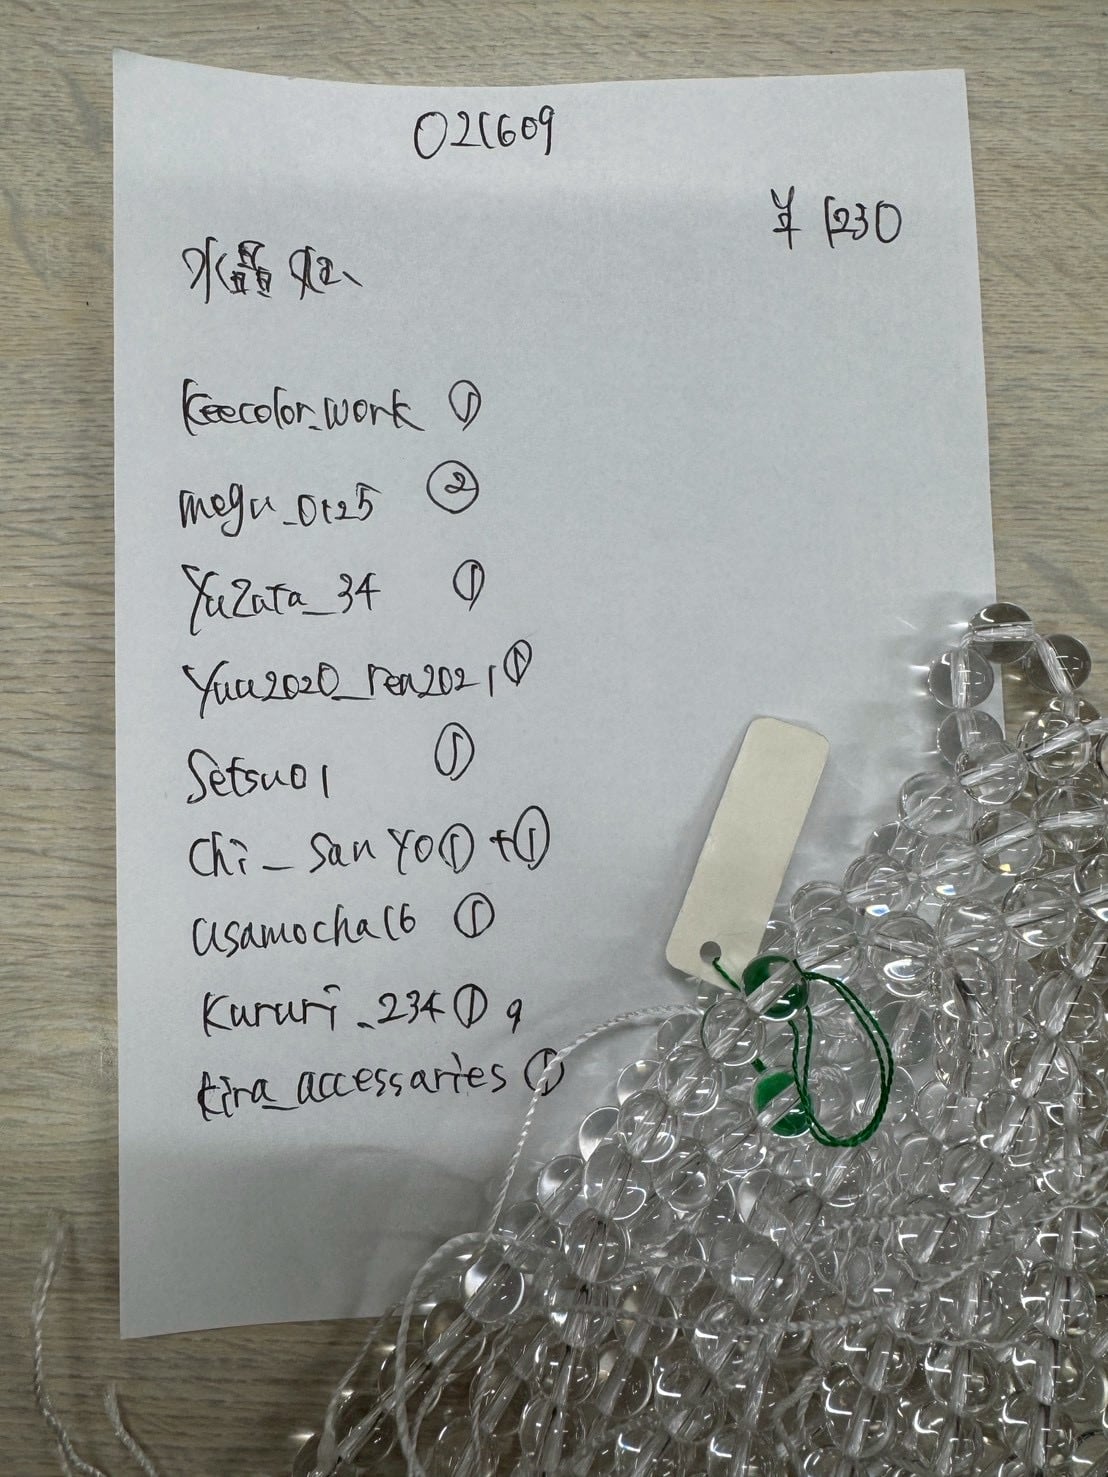 021609
¥1230
水晶
Keecolor_work ①
megu_0125 ②
Yuzata_34 ①
Yuu2020_ren2021 ①
Setsu01 ①
Chi_sanyo ① + ①
usamocha16 ①
Kururi_234 ① 9
kira_accessaries ①